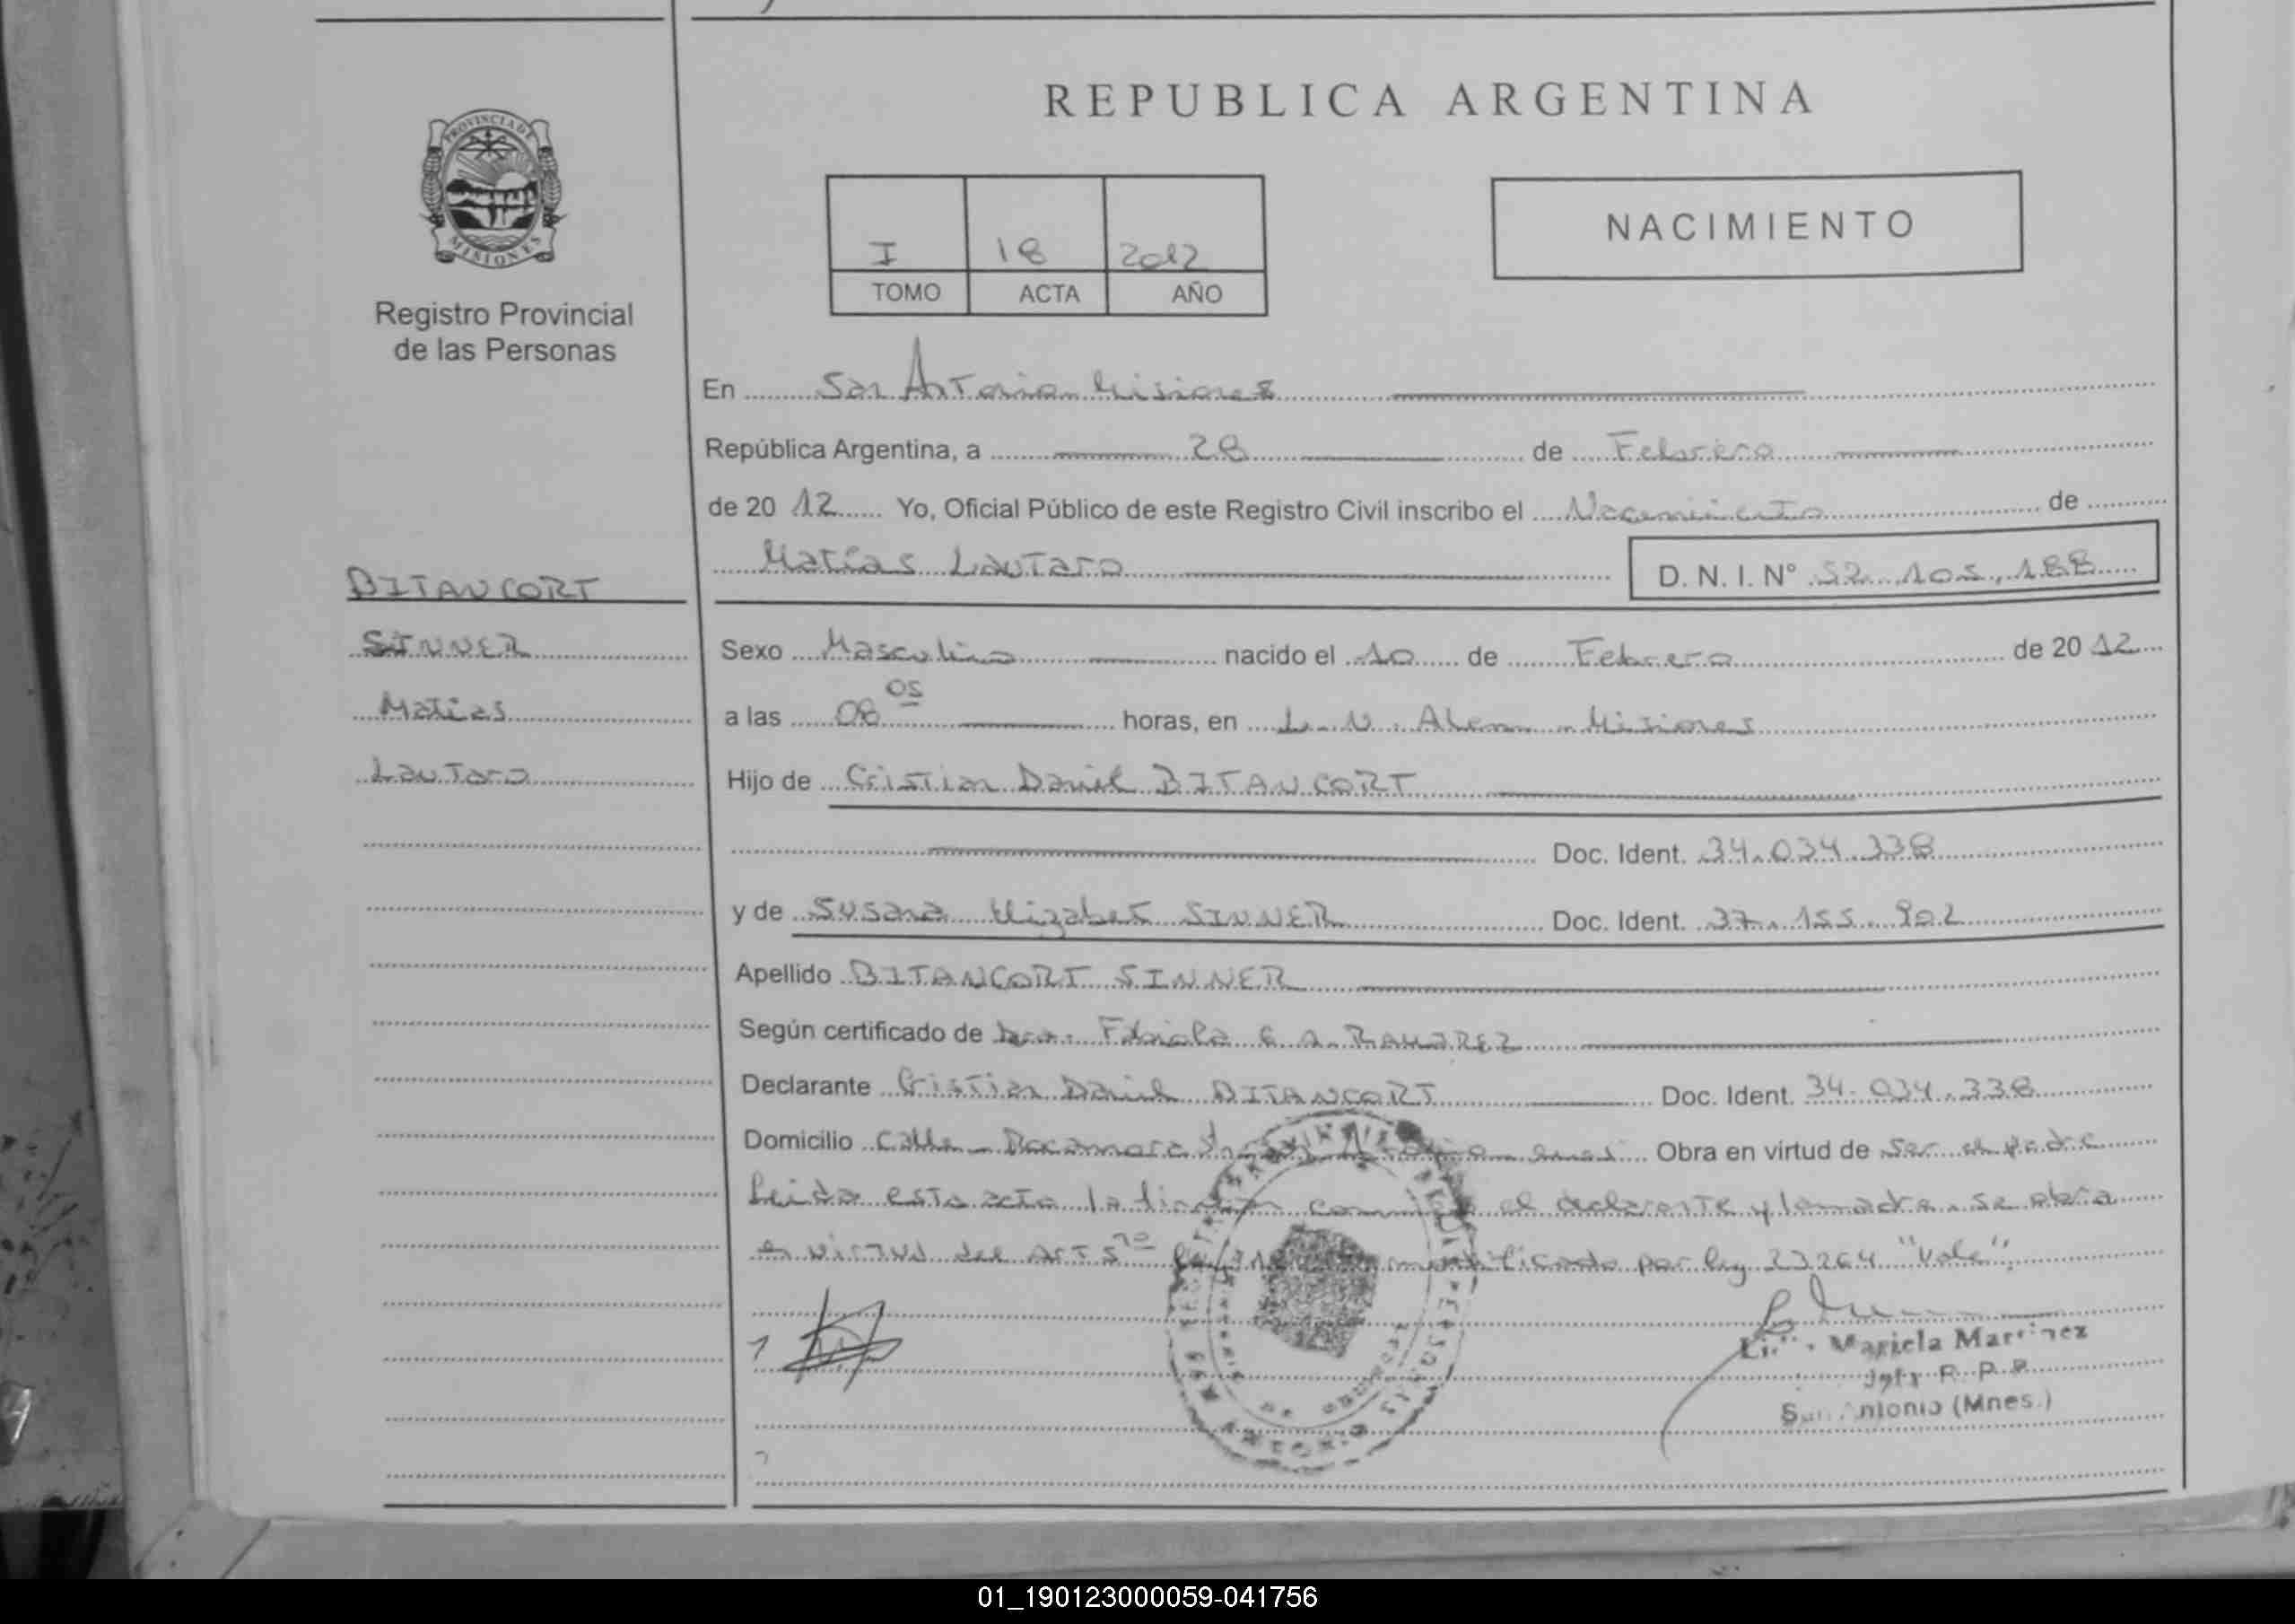 REPUBLICA ARGENTINA
PROVINCIA DE
MISIONES
Registro Provincial
de las Personas
I 18 2012
TOMO ACTA AÑO
NACIMIENTO
En San Antonio Misiones
República Argentina, a 28 de Febrero
de 20 12 Yo, Oficial Público de este Registro Civil inscribo el Nacimiento de
Matías Lautaro D. N. I. Nº 52.105.188
BITANCORT
SINNER
Matías
Lautaro
Sexo Masculino nacido el 10 de Febrero de 20 12
a las 08 05 horas, en L. N. Alem - Misiones
Hijo de Cristian Daniel BITANCORT
Doc. Ident. 34.034.338
y de Susana Elizabet SINNER Doc. Ident. 37.155.902
Apellido BITANCORT SINNER
Según certificado de Dra. Fabiola E. A. RAMIREZ
Declarante Cristian Daniel BITANCORT Doc. Ident. 34.034.338
Domicilio Calle - Rocamora Obra en virtud de ser el padre
Leida esta acta la firman el declarante y la madre. se obra
en virtud del Art 5 modificado por ley 23264 "Vale".
Mariela Martinez
Jefe R. P. P.
San Antonio (Mnes.)
01_190123000059-041756